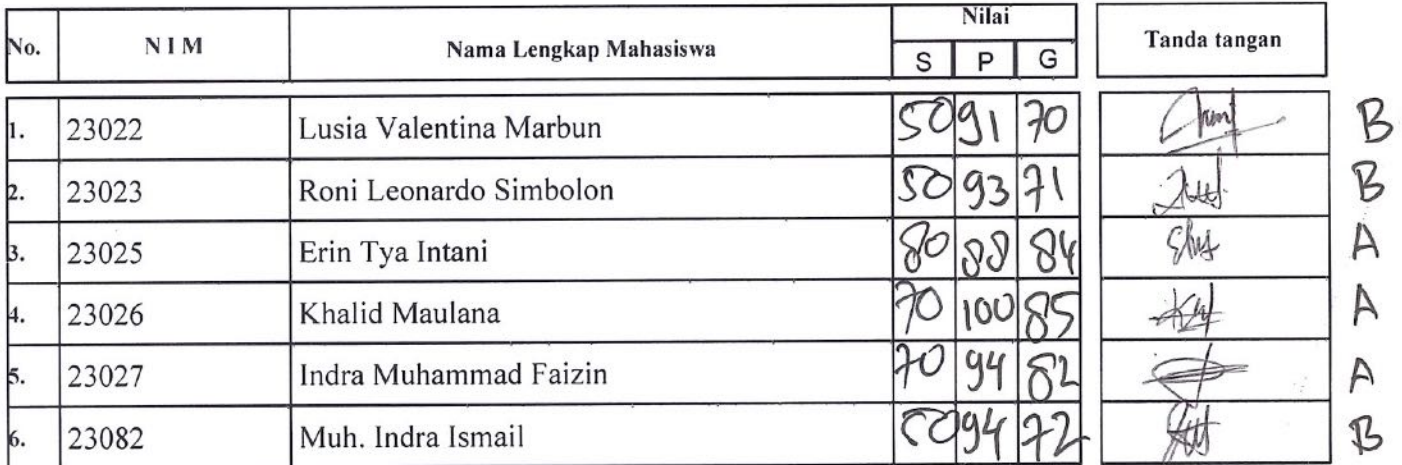 No. N I M Nama Lengkap Mahasiswa Nilai Tanda tangan
S P G
1. 23022 Lusia Valentina Marbun 50 91 70 B
2. 23023 Roni Leonardo Simbolon 50 93 71 B
3. 23025 Erin Tya Intani 80 88 84 A
4. 23026 Khalid Maulana 70 100 85 A
5. 23027 Indra Muhammad Faizin 70 94 82 A
6. 23082 Muh. Indra Ismail 50 94 72 B